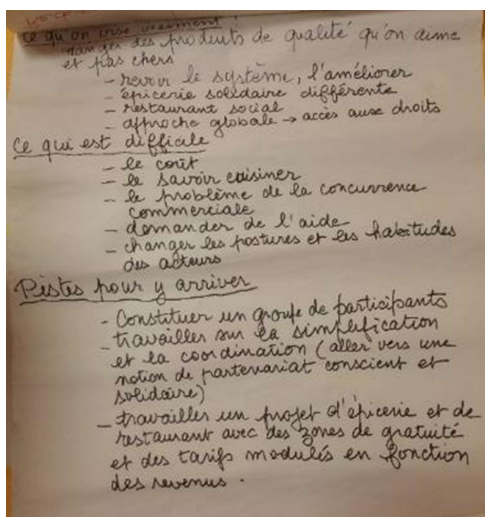 ce qu'on vise vraiment :
manger des produits de qualité qu'on aime
et pas chers
- revoir le système, l'améliorer
- épicerie solidaire différente
- restaurant social
- approche globale → accès aux droits
Ce qui est difficile
- le coût
- le savoir cuisiner
- le problème de la concurrence
commerciale
- demander de l'aide
- changer les postures et les habitudes
des acteurs
Pistes pour y arriver
- Constituer un groupe de participants
- travailler sur la simplification
et la coordination (aller vers une
notion de partenariat conscient et
solidaire)
- travailler un projet d'épicerie et de
restaurant avec des zones de gratuité
et des tarifs modulés en fonction
des revenus.